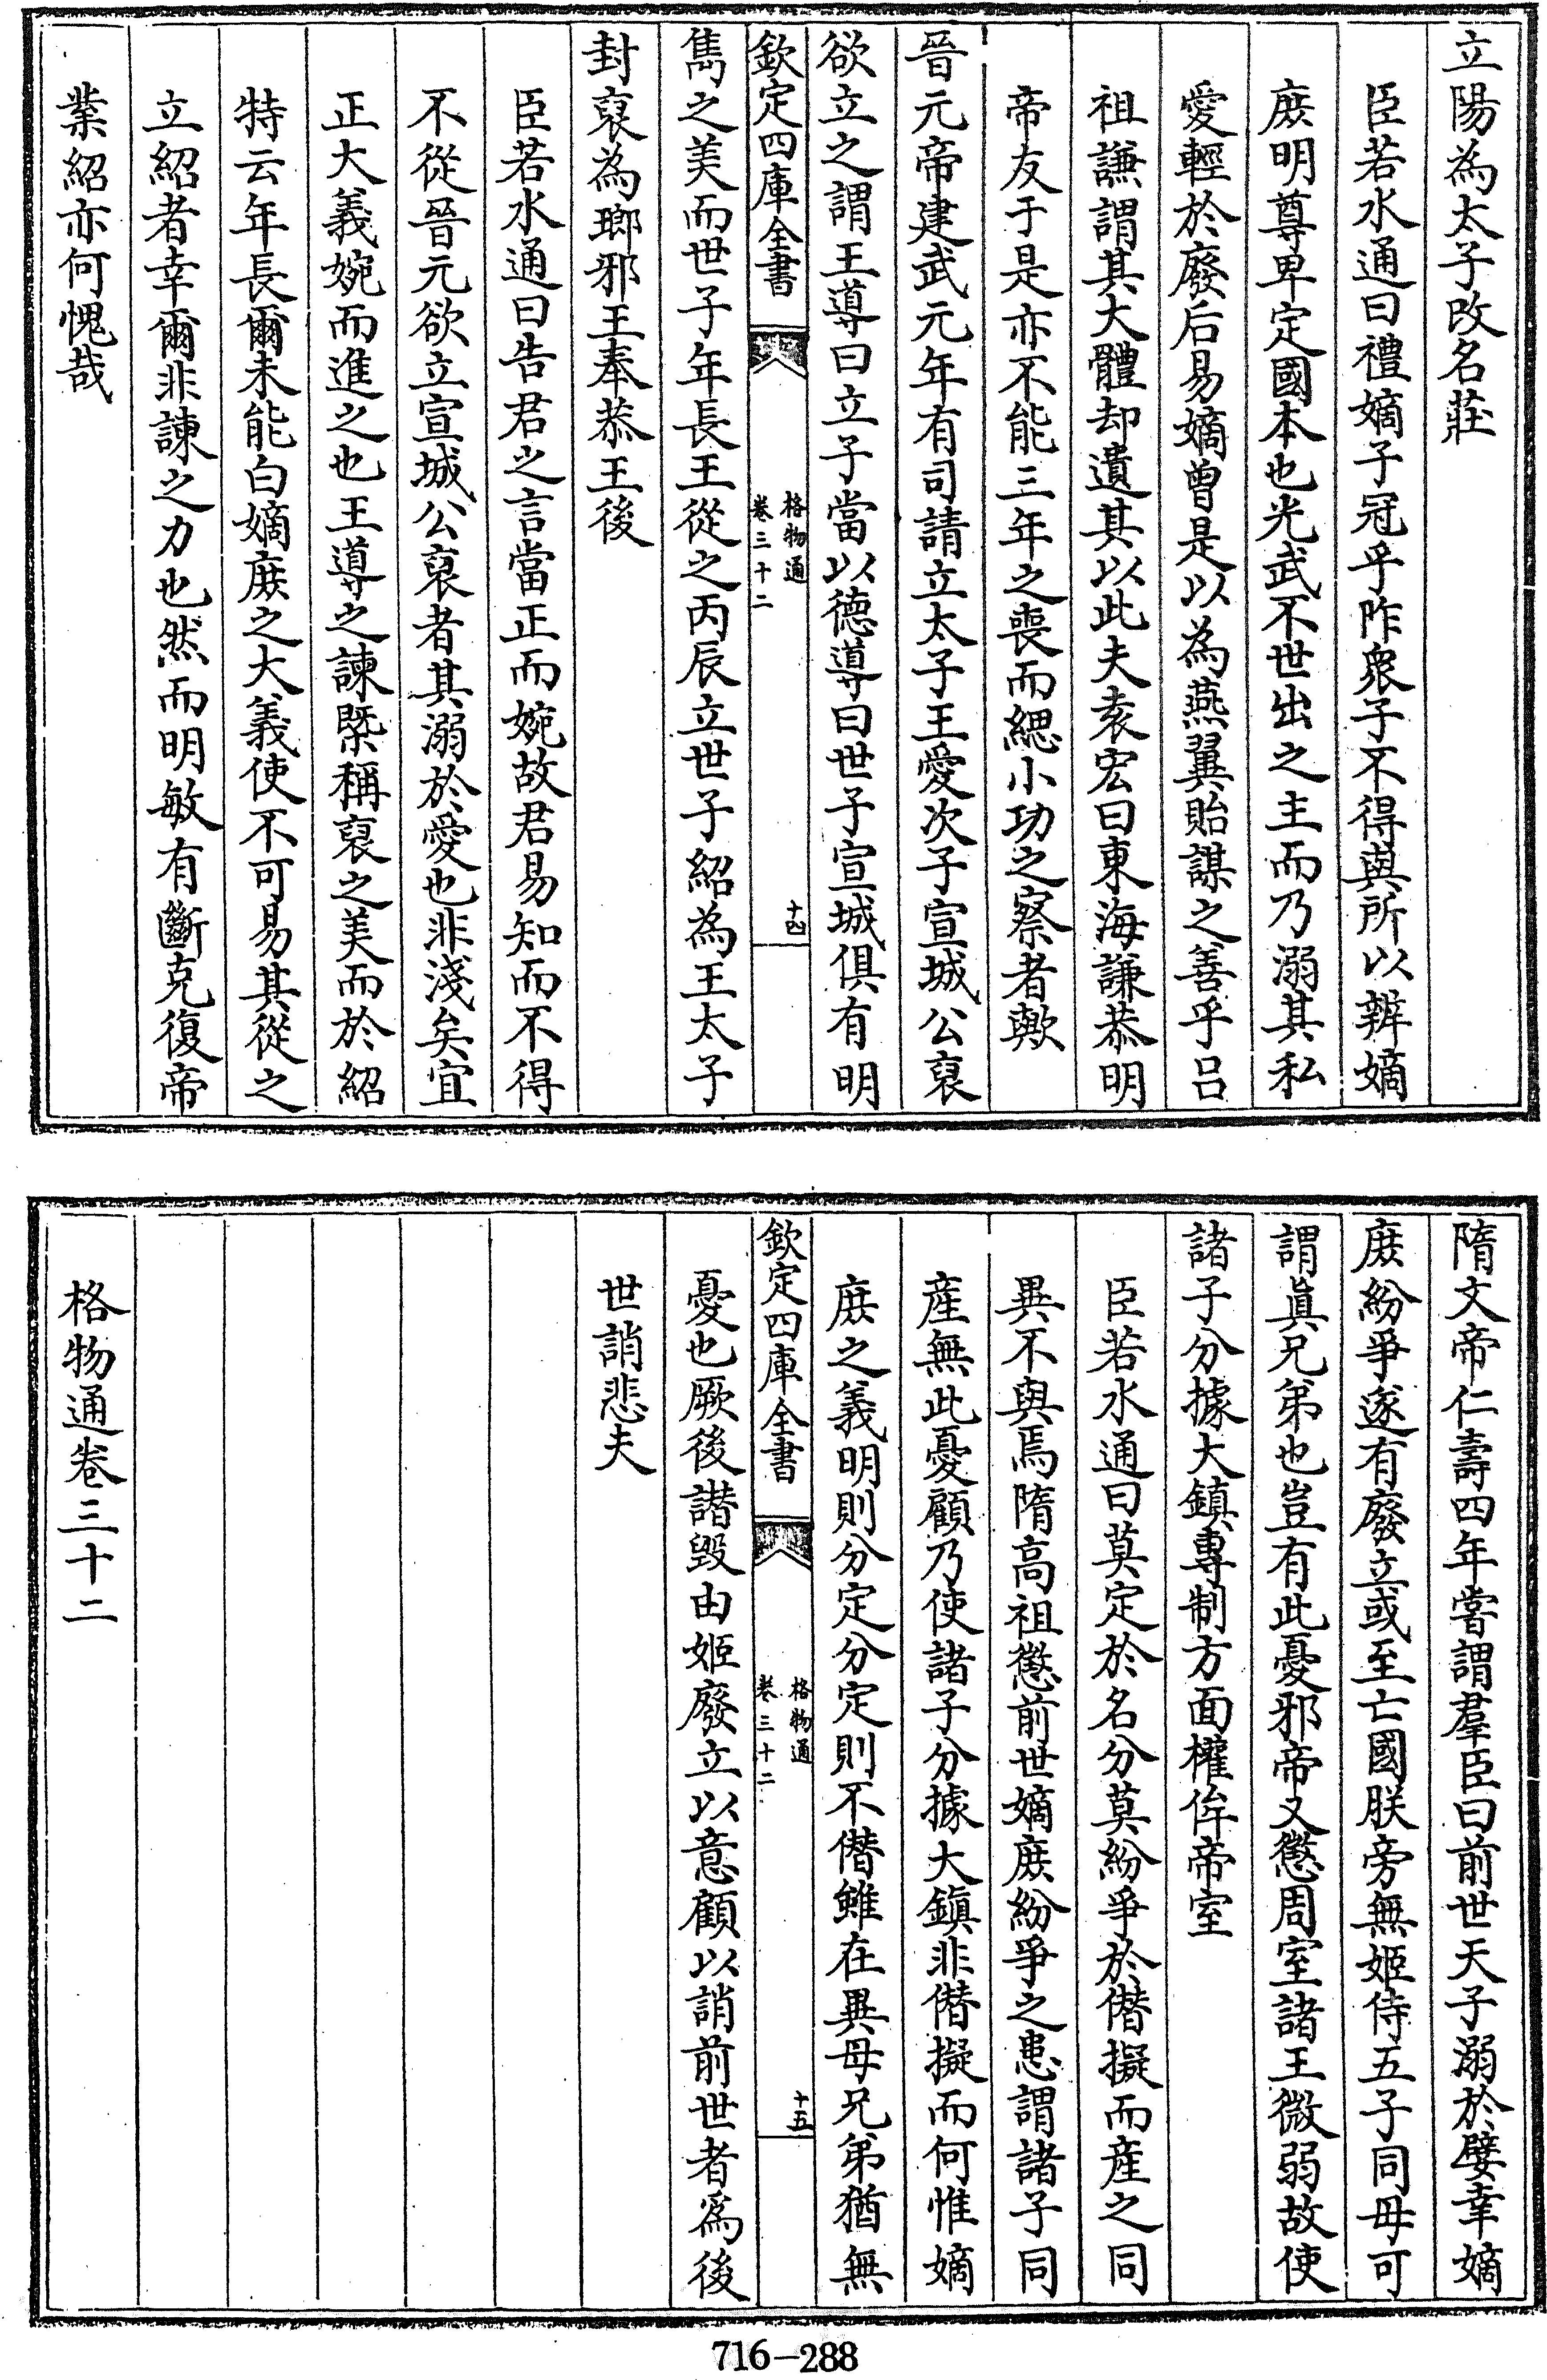 立陽為太子改名莊
臣若水通曰禮嫡子冠乎阼衆子不得與所以辨嫡
庶明尊卑定國本也光武不世出之主而乃溺其私
愛輕於廢后易嫡曾是以為燕翼貽謀之善乎吕
祖謙謂其大體却遺其以此夫袁宏曰東海謙恭明
帝友于是亦不能三年之喪而緦小功之察者歟
晉元帝建武元年有司請立太子王愛次子宣城公裒
欲立之謂王導曰立子當以德導曰世子宣城俱有明
欽定四庫全書
格物通
卷三十二
十四
雋之美而世子年長王從之丙辰立世子紹為王太子
封裒為瑯邪王奉恭王後
臣若水通曰告君之言當正而婉故君易知而不得
不從晉元欲立宣城公裒者其溺於愛也非淺矣宜
正大義婉而進之也王導之諫槩稱裒之美而於紹
特云年長爾未能白嫡庶之大義使不可易其從之
立紹者幸爾非諫之力也然而明敏有斷克復帝
業紹亦何愧哉
隋文帝仁壽四年嘗謂羣臣曰前世天子溺於嬖幸嫡
庶紛爭遂有廢立或至亡國朕旁無姬侍五子同母可
謂真兄弟也豈有此憂邪帝又懲周室諸王微弱故使
諸子分據大鎮專制方面權侔帝室
臣若水通曰莫定於名分莫紛爭於僭擬而產之同
異不與焉隋高祖懲前世嫡庶紛爭之患謂諸子同
產無此憂顧乃使諸子分據大鎮非僭擬而何惟嫡
庶之義明則分定分定則不僭雖在異母兄弟猶無
欽定四庫全書
格物通
卷三十二
十五
憂也厥後譖毀由姬廢立以意顧以誚前世者爲後
世誚悲夫
格物通卷三十二
716-288